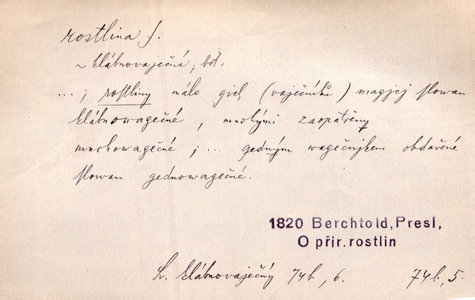 rostlina f.
~ klábnovaječná; bot.
...; rostliny málo gich (vaječníků) magjcj slowau
klábnowagečné, mnohými zaopatřeny
mnohowagečné; ... gedným wagečnjkem obdařené
slowau gednowagečné.
1820 Berchtold, Presl,
O přir. rostlin
Sv. klábnovaječný 74b, 6. 74b, 5.